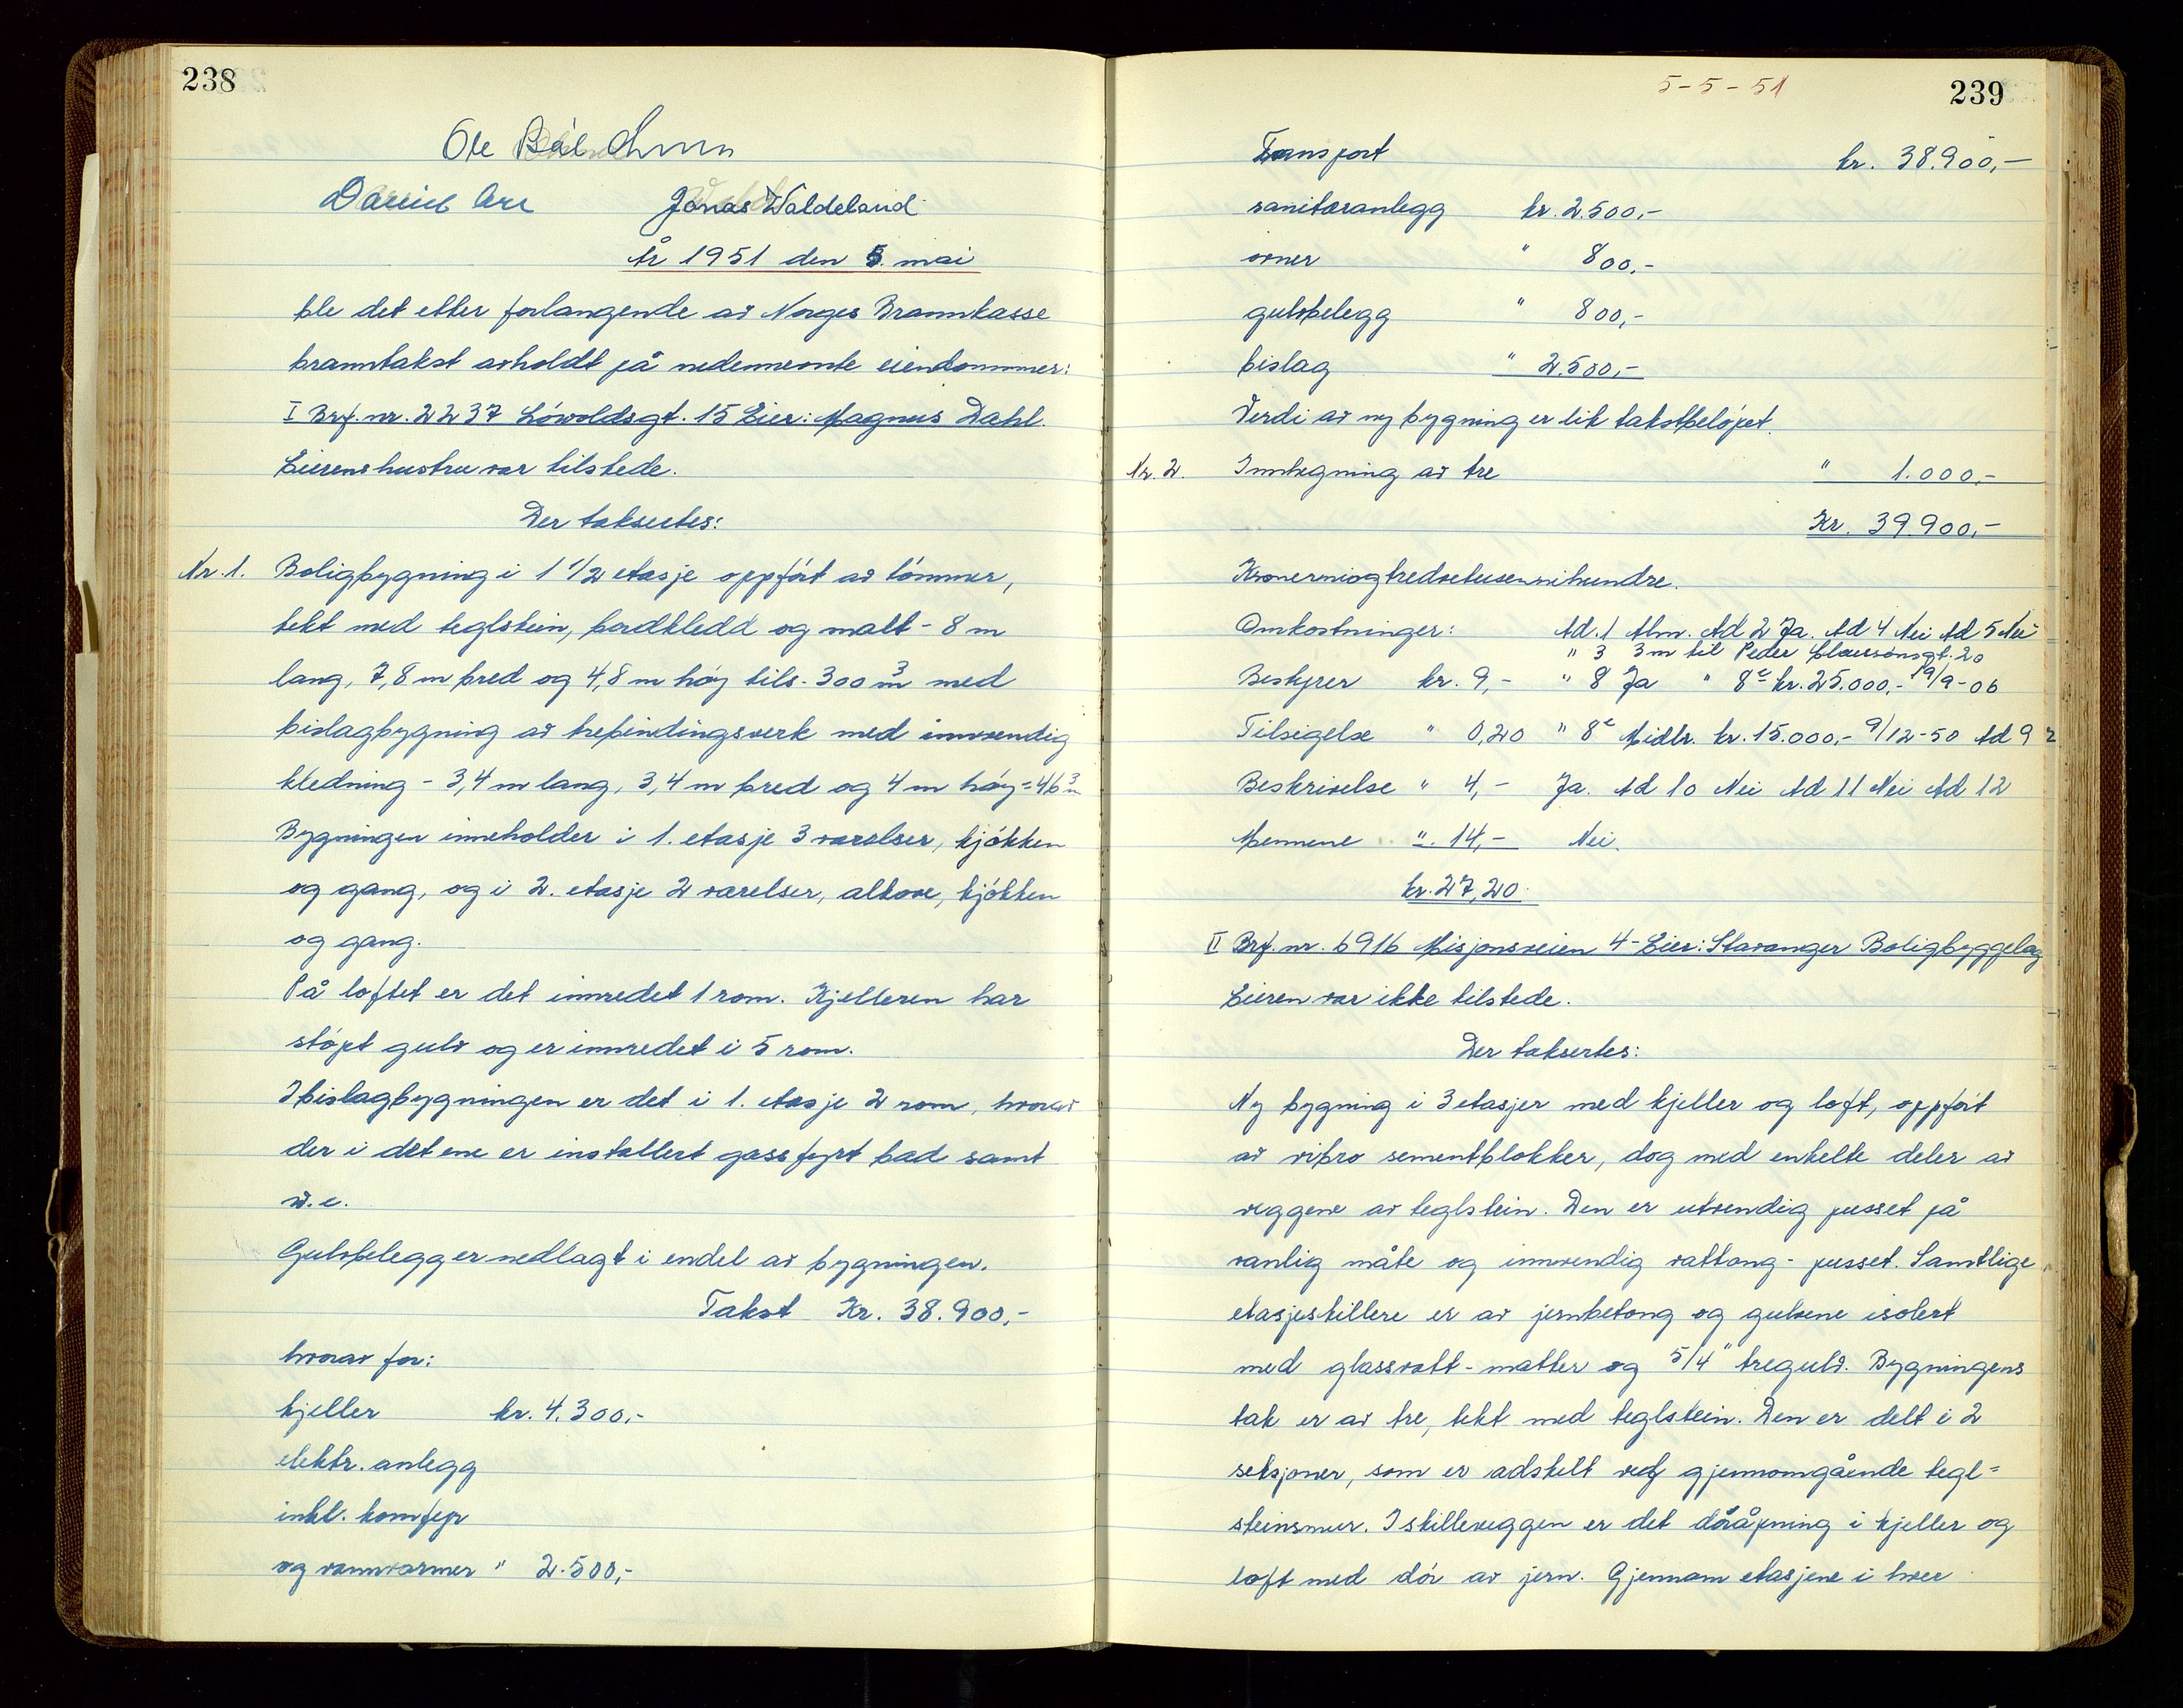 238
Jonas Waldeland
År 1951 den 5. mai
ble det etter forlangende av Norges Brannkasse
branntakst avholdt på nedennevnte eiendommer:
I Brf. nr. 2237 Lövoldsgt. 15 Eier: Magnus Dahl.
Eierens hustru var tilstede.
Der taksertes:
Nr. 1. Boligbygning i 1 1/2 etasje oppfört av tömmer,
tekt med teglstein, bordkledd og malt - 8 m
lang, 7,8 m bred og 4,8 m höy tils. 300 m³ med
bislagbygning av trebindingsverk med innvendig
kledning - 3,4 m lang, 3,4 m bred og 4 m höy = 46 m³
Bygningen inneholder i 1. etasje 3 værelser, kjökken
og gang, og i 2. etasje 2 værelser, alkove, kjökken
og gang.
På loftet er det innredet 1 rom. Kjelleren har
stöpt gulv og er innredet i 5 rom.
I bislagbygningen er det i 1. etasje 2 rom, hvorav
der i det ene er installert gassfyrt bad samt
w.c.
Gulvbelegg er nedlagt i endel av bygningen.
Takst Kr. 38.900,-
hvorav for:
kjeller kr. 4.300,-
elektr. anlegg
inkl. komfyr
og vannvarmer " 2.500,-
5-5-51
239
Transport kr. 38.900,-
sanitæranlegg kr. 2.500,-
ovner " 800,-
gulvbelegg " 800,-
bislag " 2.500,-
Verdi av ny bygning er lik takstbelöpet.
Nr. 2. Innhegning av tre " 1.000,-
Kr. 39.900,-
Kronerniogtredvetusennihundre.
Omkostninger: Ad. 1 Alm. Ad 2 Ja. Ad 4 Nei Ad 5 Nei
" 3 3 m til Peder Claussönsgt. 20
Bestyrer kr. 9,- " 8 Ja " 8c kr. 25.000,- 19/9-06
Tilsigelse " 0,20 " 8c Midlr. kr. 15.000,- 9/12-50 Ad 9 2
Beskrivelse " 4,- Ja. Ad 10 Nei Ad 11 Nei Ad 12
Mennene " 14,- Nei.
kr. 27,20
II Brf. nr. 6916 Misjonsveien 4 - Eier: Stavanger Boligbyggelag
Eieren var ikke tilstede.
Der taksertes:
Ny bygning i 3 etasjer med kjeller og loft, oppfört
av vibro sementblokker, dog med enkelte deler av
veggene av teglstein. Den er utvendig pusset på
vanlig måte og innvendig vattong-pusset. Samtlige
etasjeskillere er av jernbetong og gulvene isolert
med glassvatt-matter og 5/4" tregulv. Bygningens
tak er av tre, tekt med teglstein. Den er delt i 2
seksjoner, som er adskilt ved gjennomgående tegl=
steinsmur. I skilleveggen er det döråpning i kjeller og
loft med dör av jern. Gjennom etasjene i hver